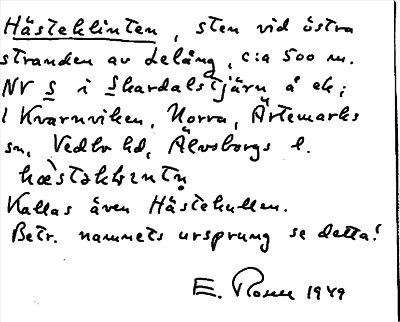 Hästeklinten, sten vid östra
stranden av Lelång, c:a 500 m.
NV S i Skardalstjärn å ek;
i Kvarnviken, Norra, Ärtemarks
sn, Vedbo hd, Älvsborgs l.
Kallas även Hästekullen.
Betr. namnets ursprung se detta!
E. Rosen 1949